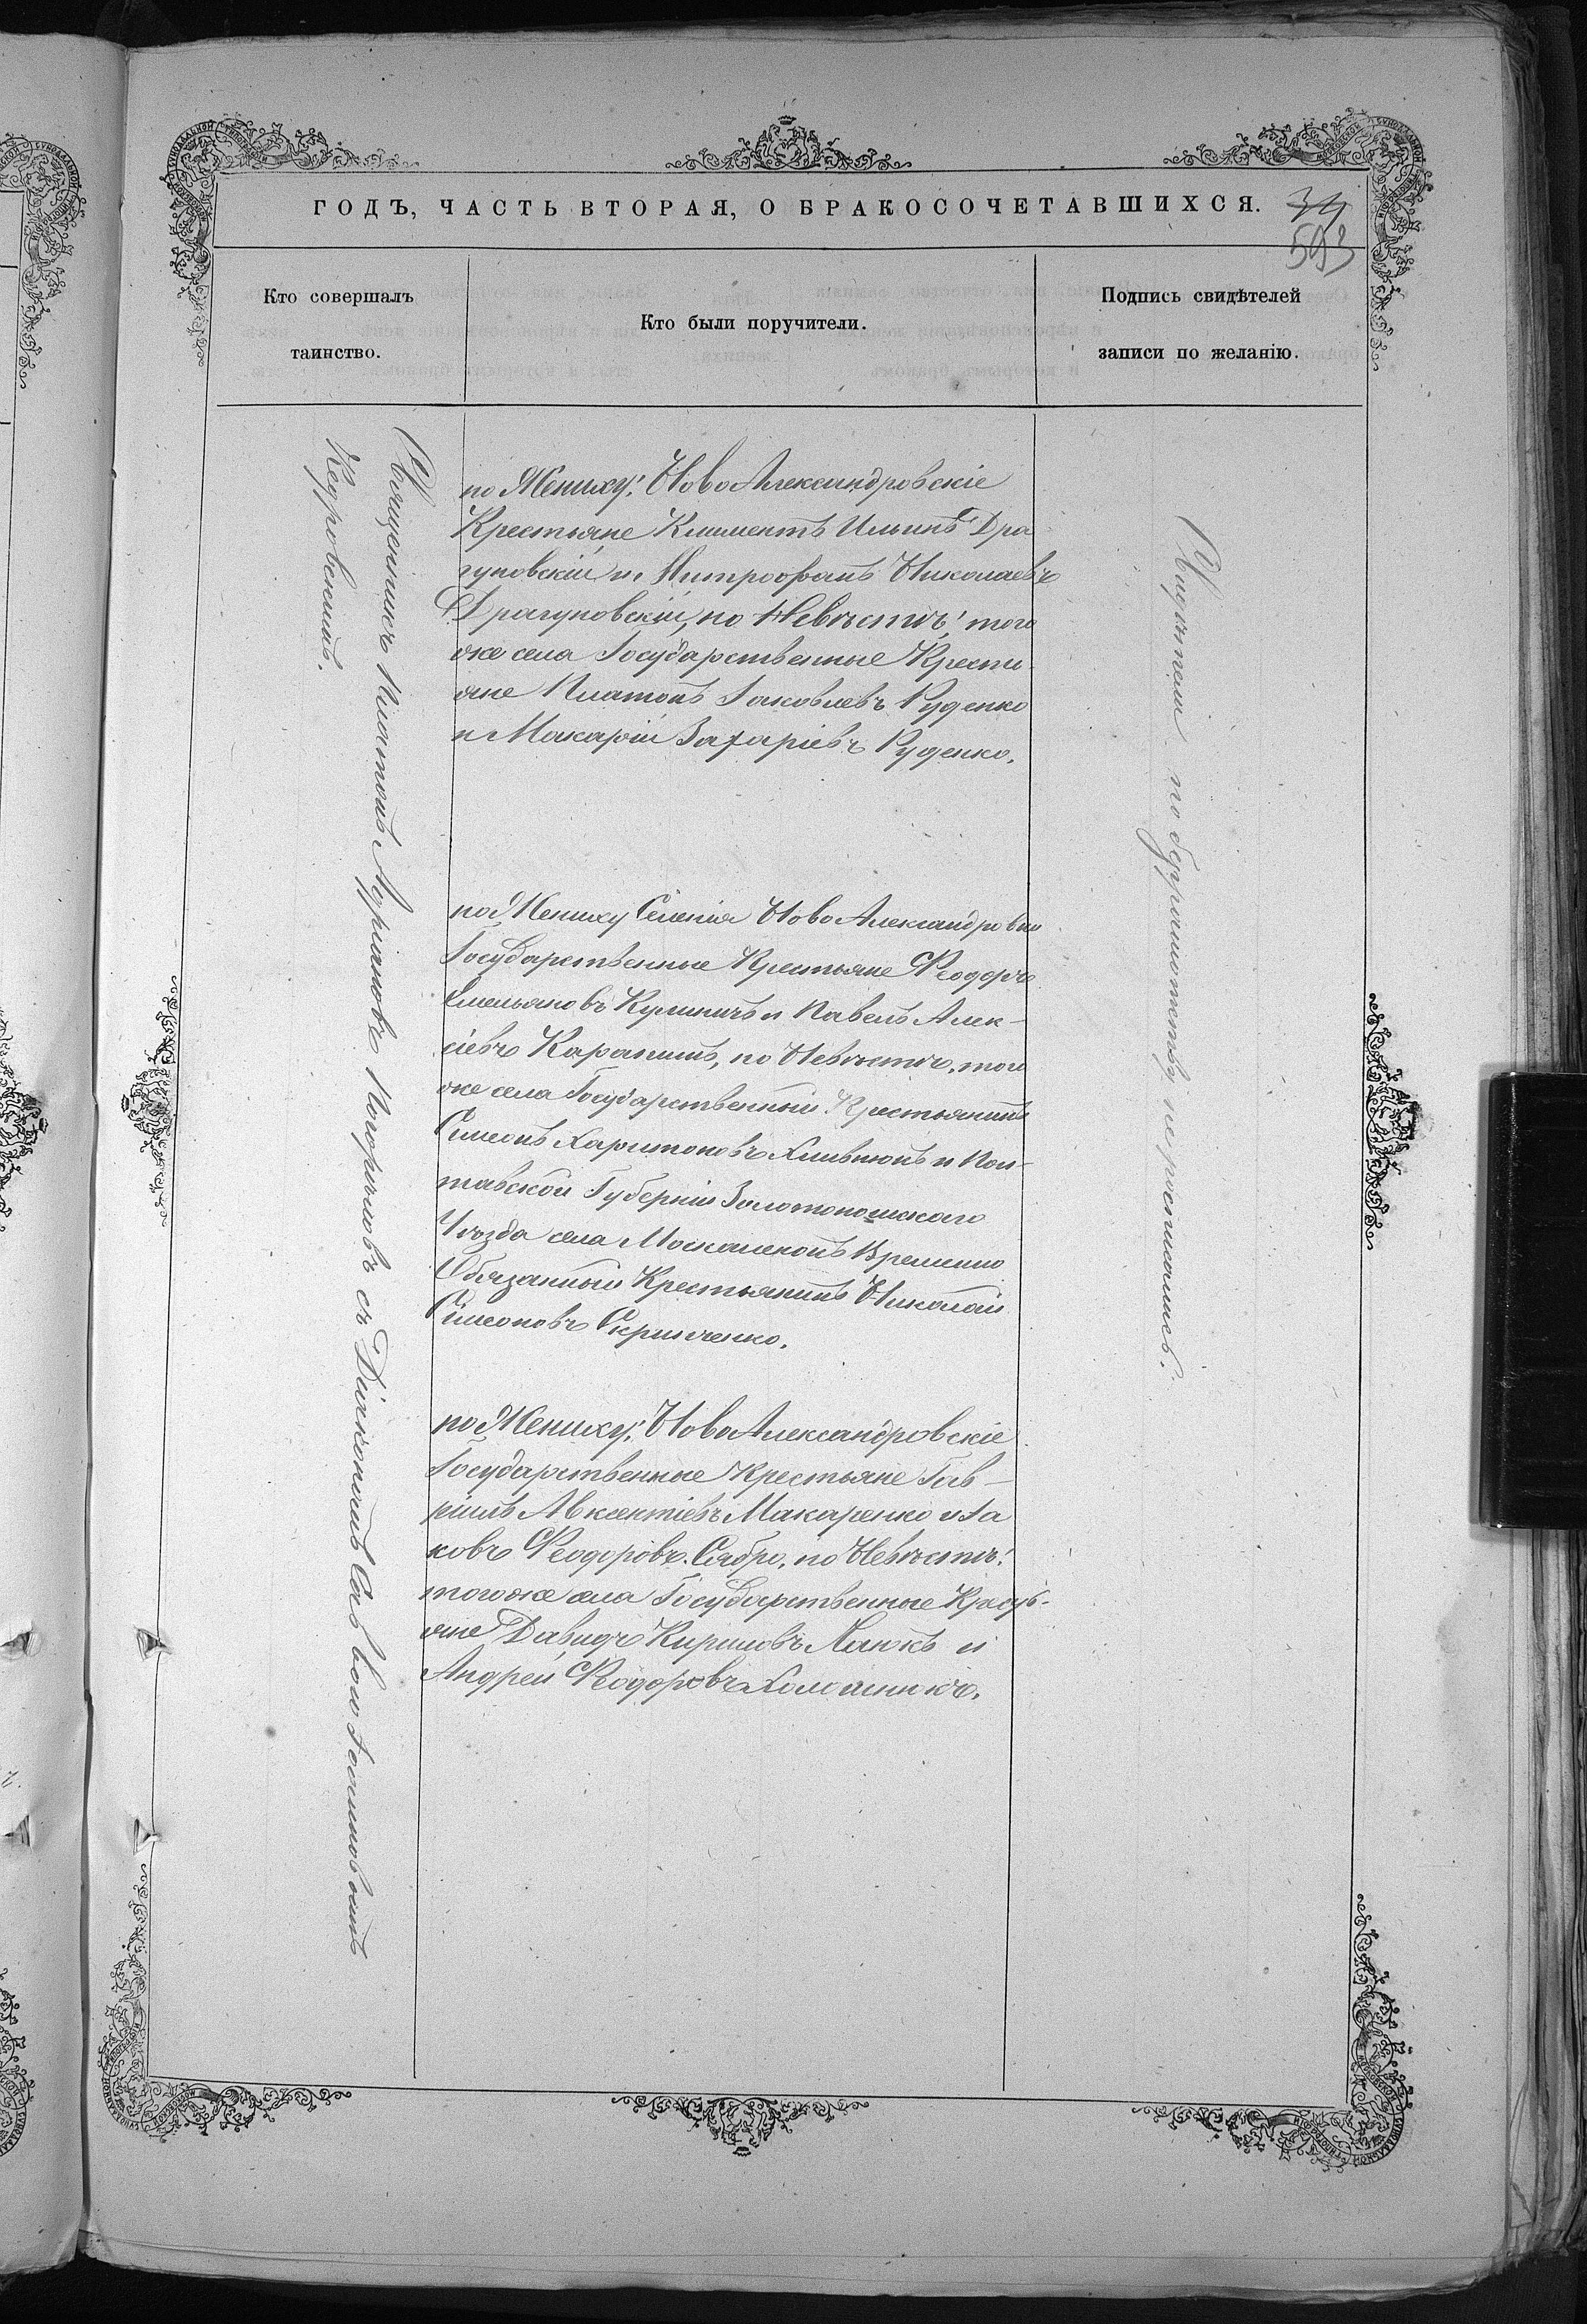 ГОДЪ, ЧАСТЬ ВТОРАЯ, О БРАКОСОЧЕТАВШИХСЯ.
34
593
Кто совершалъ
таинство.
Кто были поручители.
Подпись свидѣтелей
записи по желанію.
Священникъ Платонъ Погорѣловъ съ Діакономъ Савво Іоанновымъ
Кедровскимъ.
по Жениху: Ново Александровскіе
Крестьяне Климентъ Ильинъ Дра
гуновскій и Митрофанъ Николаевъ
Драгуновскій, по Невѣстѣ: того
же села Государственные Крестъ
яне Платонъ Іаковлевъ Руденко
и Макарій Захаріевъ Руденко.
по Жениху Селенія Ново Александровки
Государственные Крестьяне Ѳеодоръ
Емельяновъ Куриничъ и Павелъ Алек-
сіевъ по Невѣстѣ, того
же села Государственный Крестьянинъ
Симеонъ Харитоновъ и Пол-
тавской Губерніи Золотоношскаго
Уѣзда села Москаленокъ Временно
Обязанный Крестьянинъ Николай
Симеоновъ Скрипченко.
по Жениху: Ново Александровскіе
Государственные Крестьяне Гав-
ріилъ Авксентіевъ Макаренко и Іа
ковъ Ѳеодоровъ Сябро, по Невѣстѣ:
того же села Государственные Кресть-
яне Давидъ Кириловъ и
Андрей Ѳеодоровъ
Свидѣтели по безграмотству не росписались.